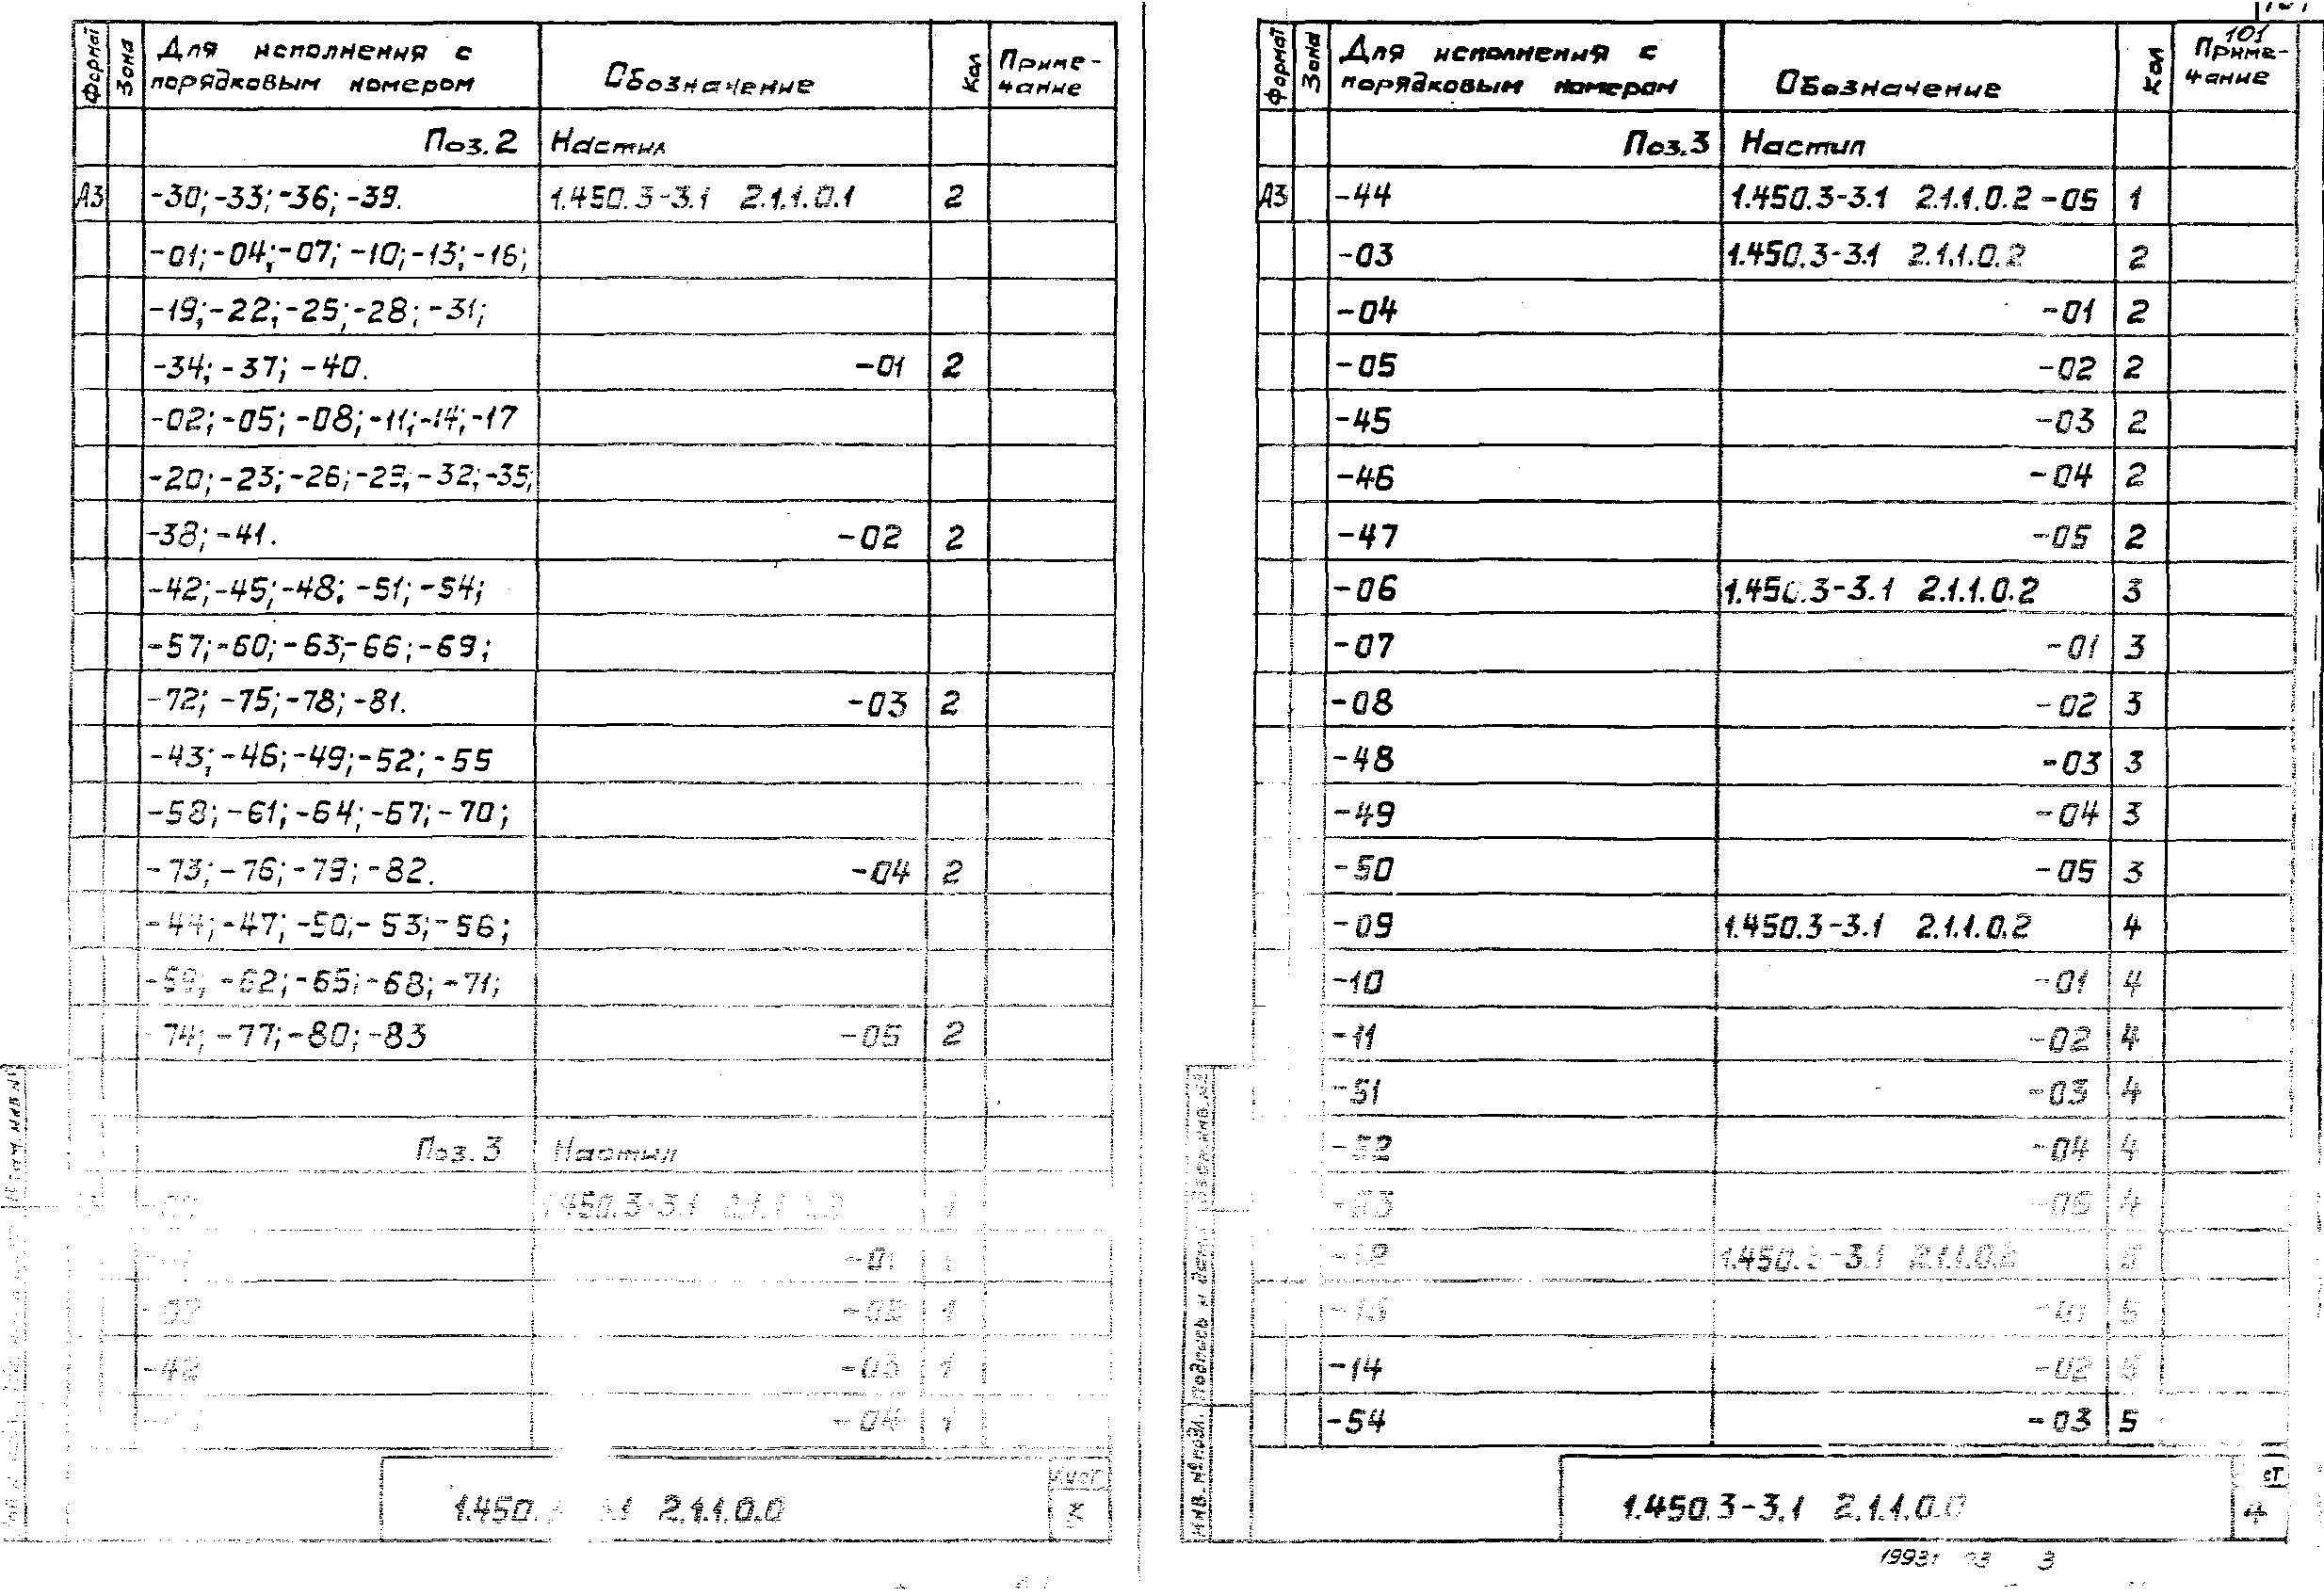 Формат Зона Для исполнения с порядковым номером Обозначение Кол Приме-чание
Поз.2 Настил
А3 -30; -33; -36; -39. 1.450.3-3.1 2.1.1.0.1 2
-01; -04; -07; -10; -13; -16;
-19; -22; -25; -28; -31;
-34; -37; -40. -01 2
-02; -05; -08; -11; -14; -17
-20; -23; -26; -29; -32; -35;
-38; -41. -02 2
-42; -45; -48; -51; -54;
-57; -60; -63; -66; -69;
-72; -75; -78; -81. -03 2
-43; -46; -49; -52; -55
-58; -61; -64; -67; -70;
-73; -76; -79; -82. -04 2
-44; -47; -50; -53; -56;
-59; -62; -65; -68; -71;
74; -77; -80; -83 -05 2
Поз.3 Настил
450.3-3.1 1
-01
-02 1
-42 -03 1
-04 1
1.450. 3.1 2.1.1.0.0
Лист
3
101
Формат Зона Для исполнения с порядковым номером Обозначение Кол Приме-чание
Поз.3 Настил
А3 -44 1.450.3-3.1 2.1.1.0.2-05 1
-03 1.450.3-3.1 2.1.1.0.2 2
-04 -01 2
-05 -02 2
-45 -03 2
-46 -04 2
-47 -05 2
-06 1.450.3-3.1 2.1.1.0.2 3
-07 -01 3
-08 -02 3
-48 -03 3
-49 -04 3
-50 -05 3
-09 1.450.3-3.1 2.1.1.0.2 4
-10 -01 4
-11 -02 4
-51 -03 4
-52 -04 4
-53 -05 4
-12 1.450.3-3.1 2.1.1.0.2 5
-13 -01 5
-14 -02 5
-54 -03 5
Инв. № подл. Подпись и дата Взам. инв. №
1.450.3-3.1 2.1.1.0.0
ст
4
19931 03 3